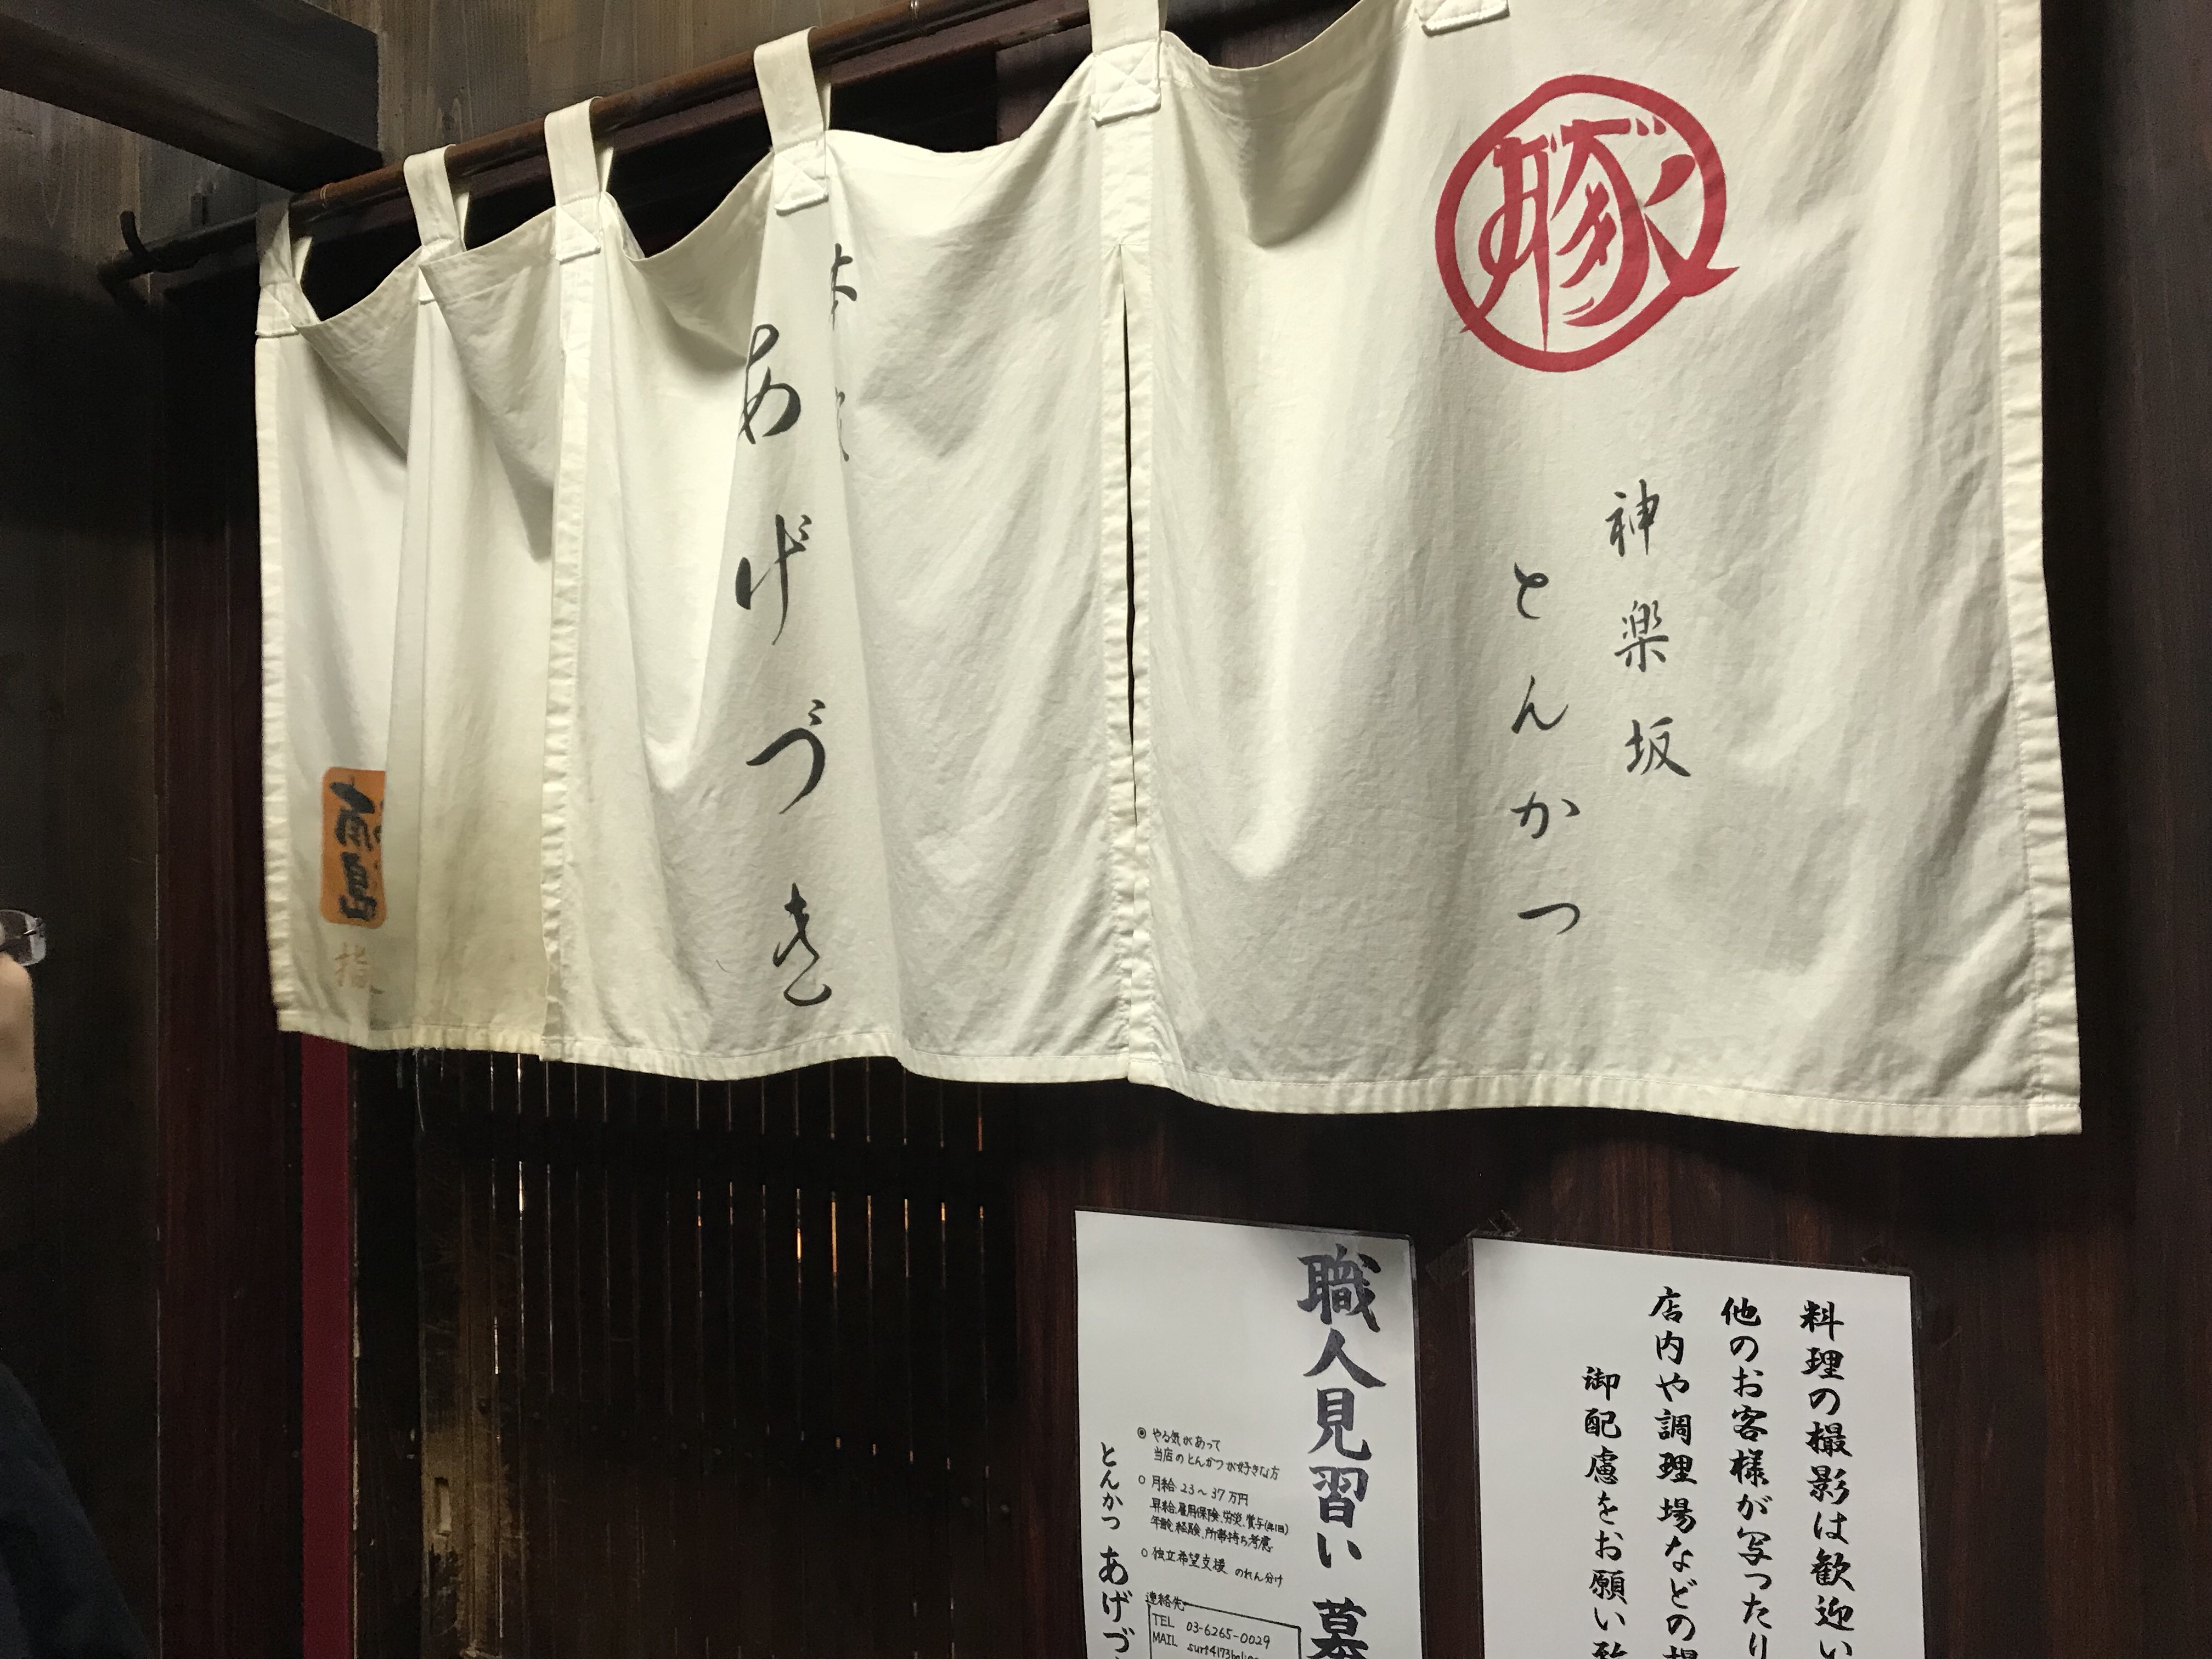 豚
神楽坂
とんかつ
あげづき
料理の撮影は歓迎い
他のお客様が写ったり
店内や調理場などの
御配慮をお願い致
職人見習い 募
◎ やる気があって
当店のとんかつが好きな方
○ 月給 23～37万円
昇給、雇用保険、労災、賞与(年1回)
年齢、経験、所帯持ち考慮
○ 独立希望支援 のれん分け
連絡先
TEL 03-6265-0029
MAIL
とんかつ あげづ